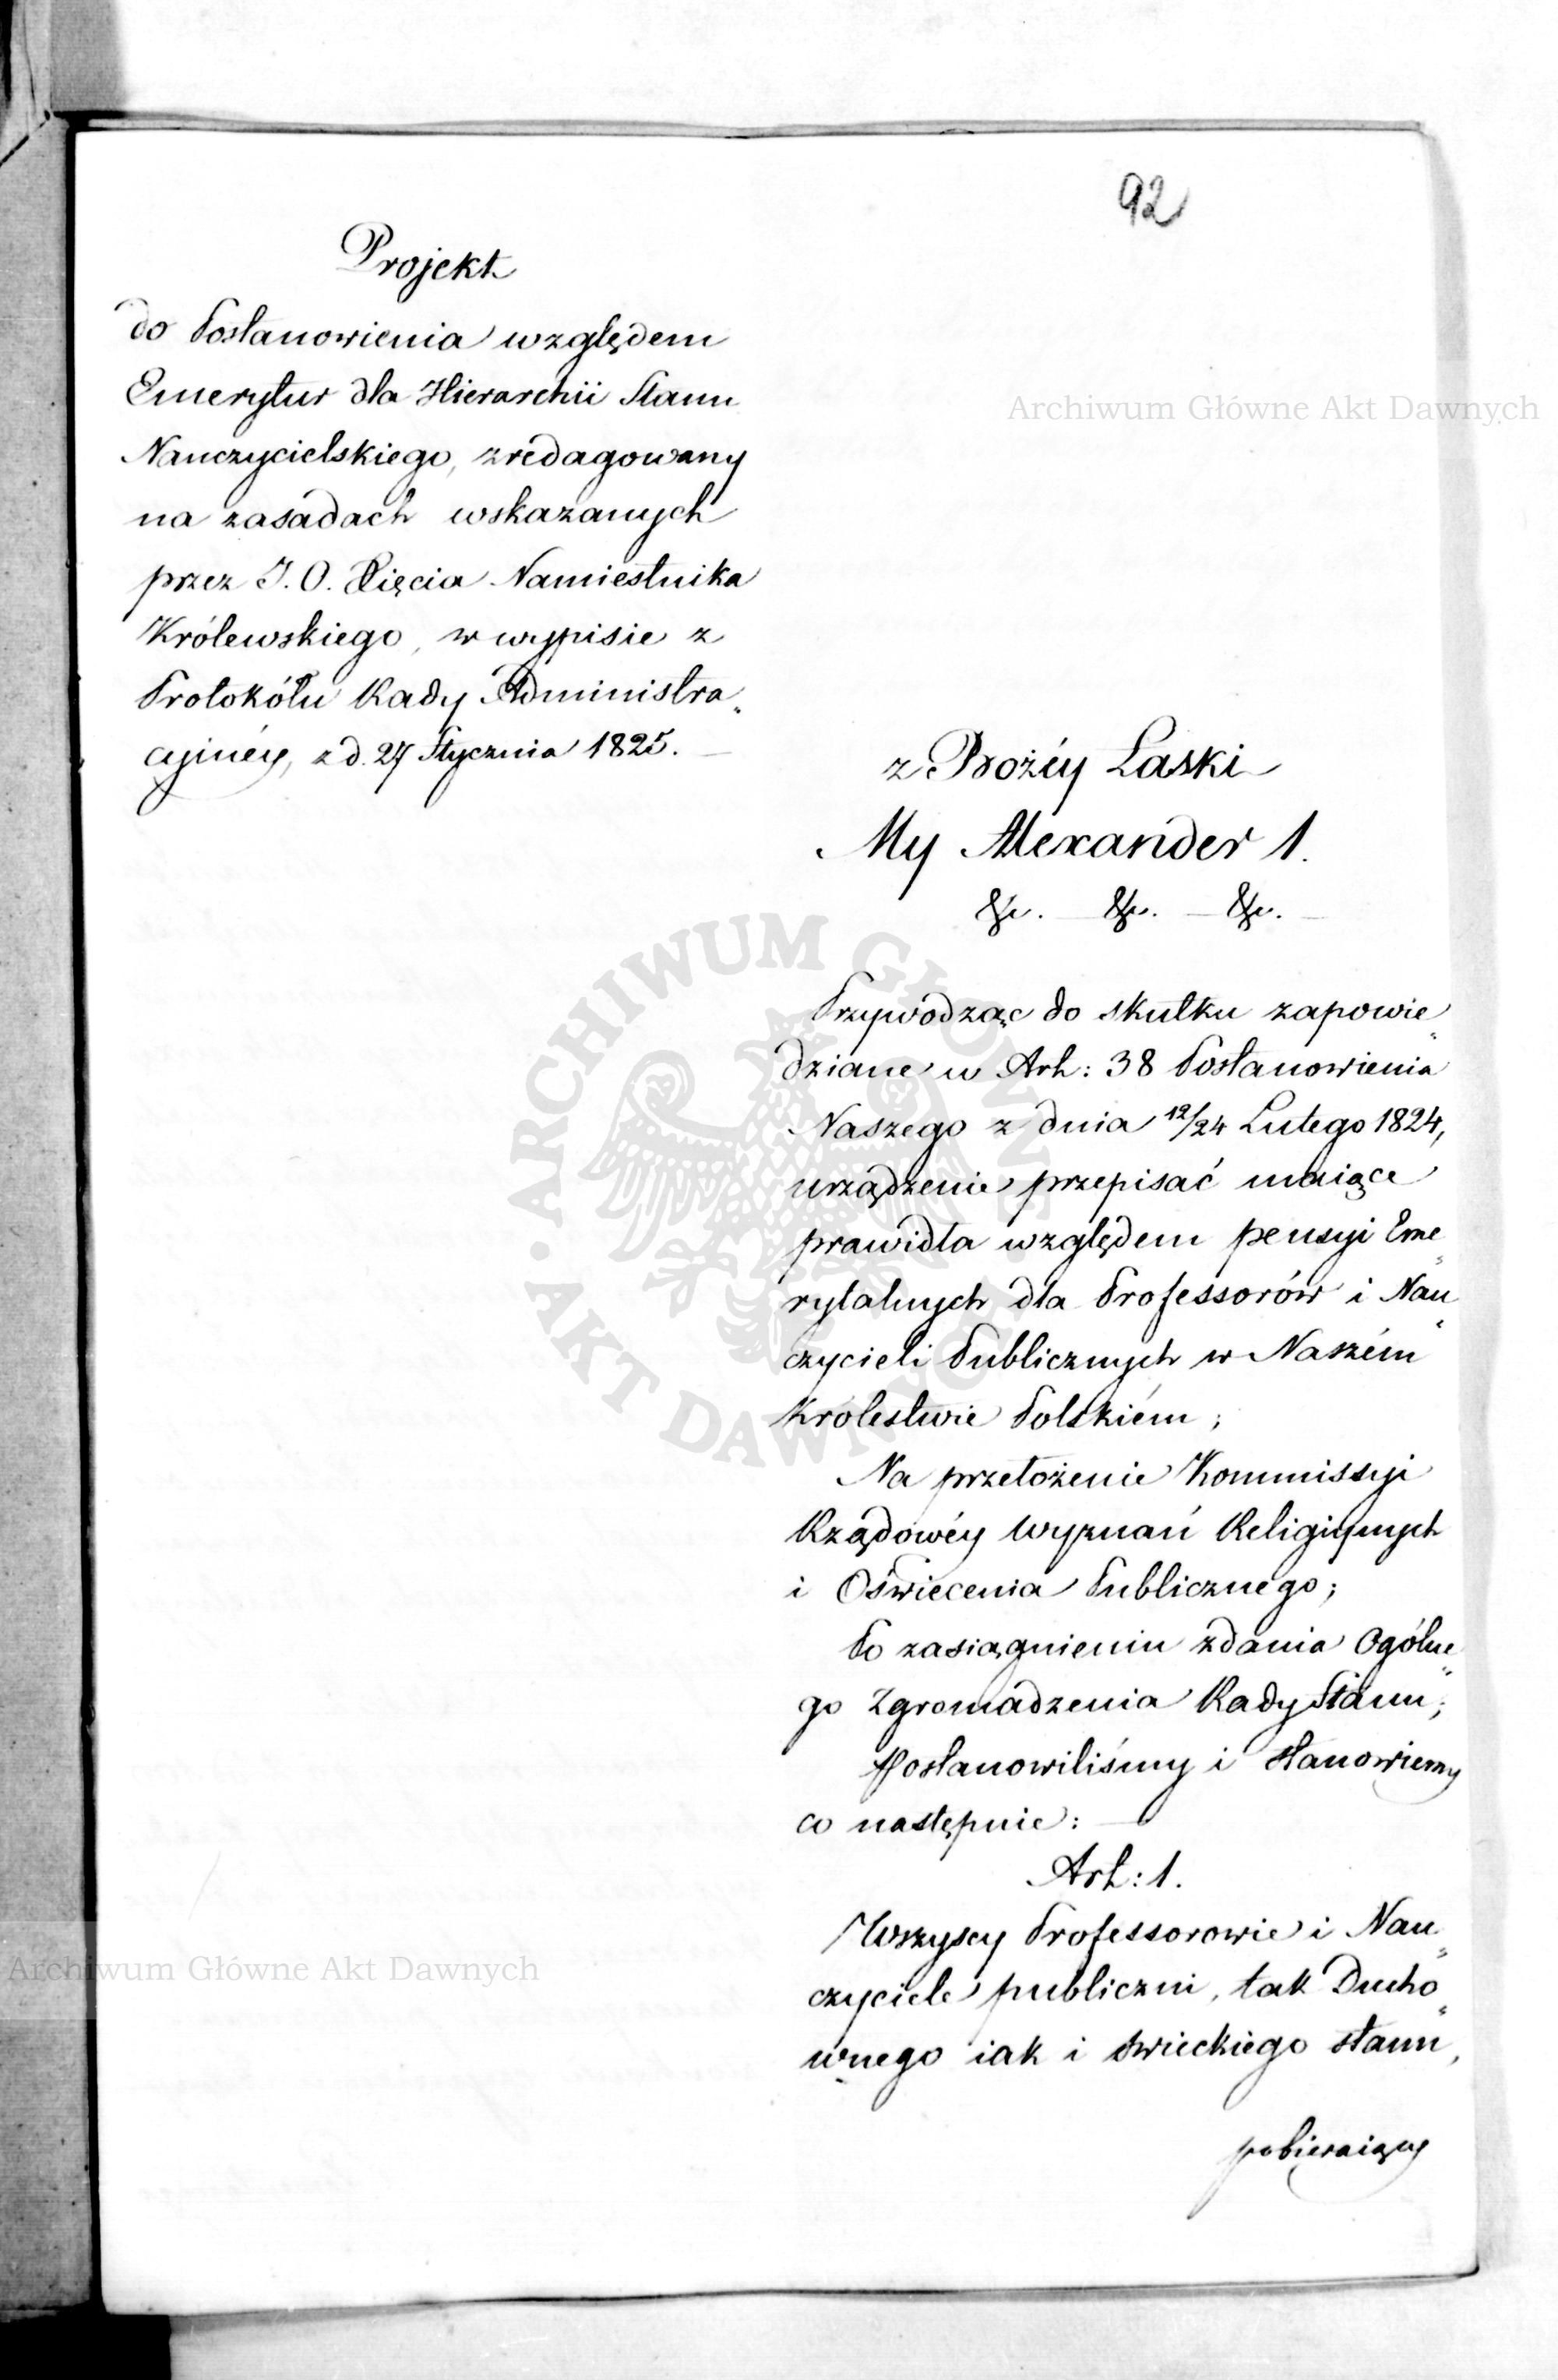 92
Projekt
do Postanowienia względem
Emerytur dla Hierarchii Stanu
Nauczycielskiego, zredagowany
na zasadach wskazanych
przez J. O. Xięcia Namiestnika
Królewskiego, w wypisie z
Protokółu Rady Administra„
cyjnéy, z d. 27 Stycznia 1825. —
z Bożéy Łaski
My Alexander 1.
&c. — &c. — &c. —
Przywodząc do skutku zapowie„
dziane w Art: 38 Postanowienia
Naszego z dnia 12/24 Lutego 1824,
urządzenie przepisać maiące
prawidła względem pensyi Eme„
rytalnych dla Professorów i Nau„
czycieli Publicznych w Naszém
Królestwie Polskiém;
Na przełożenie Kommissyi
Rządowéy Wyznań Religiynych
i Oświecenia Publicznego;
Po zasiągnieniu zdania Ogólne„
go Zgromadzenia Rady Stanu;
Postanowiliśmy i stanowiemy
co następuie: —
Art: 1.
Wszyscy Professorowie i Nau„
czyciele publiczni, tak Ducho„
wnego iak i świeckiego stanu,
pobieraiący
Archiwum Główne Akt Dawnych
ARCHIWUM GŁÓWNE · AKT DAWNYCH ·
Archiwum Główne Akt Dawnych